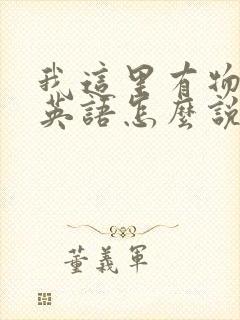 我這里有物
英語怎麼説
董義軍